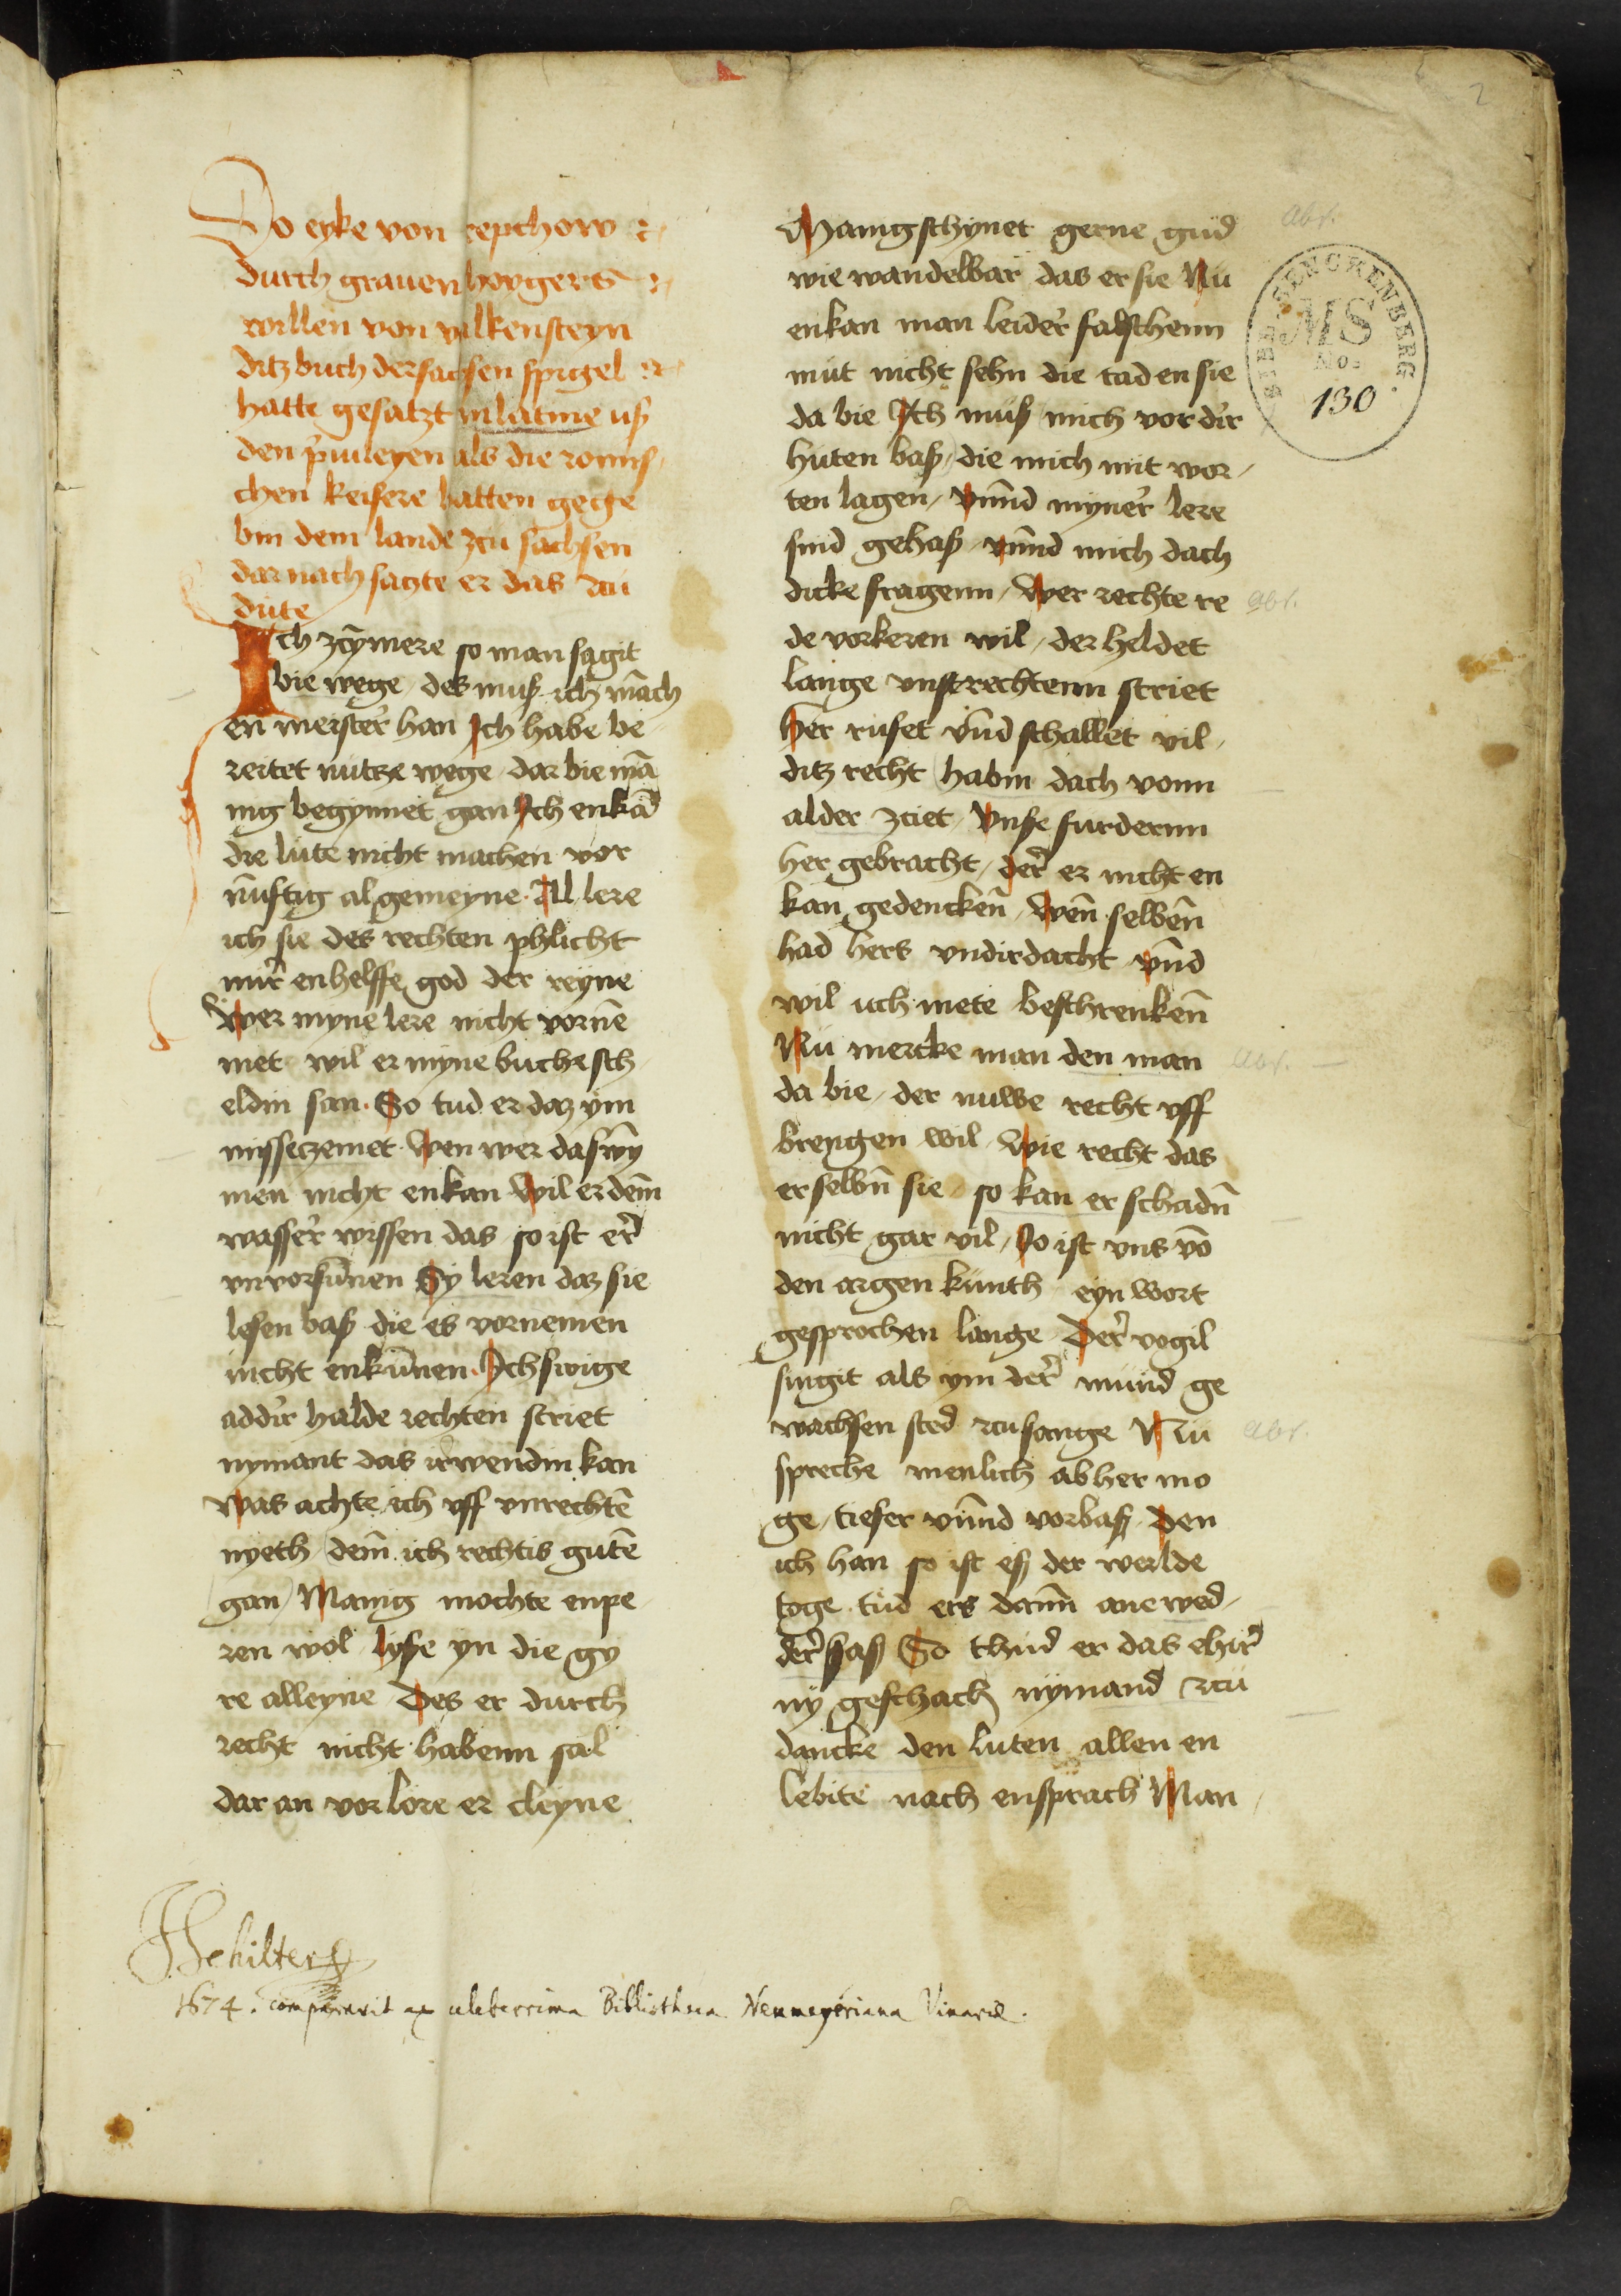 2
Do eyke von repchow
durch grauen hoygers
willen von valkensteyn
ditz buch der sachsen spigel
hatte gesatzt in latine uß
den p̄uileyen als die romis
chen keisere hatten gege
bin dem lande zcu sachsen
dar nach sagte er das zcu
dute
Ich zcȳmere so man sagit
bie wege des muß ich mā̄ch
en meister han Ich habe be
reitet nutze wege dar bie mā
nig begynnet gan Ich enkā
die lute nicht machen vor
nūftig al gemeyne Al lere
ich sie des rechten phlicht
mir enhelffe god der reyne
Wer myne lere nicht vornē
met wil er myne buche sch
eldin san So tud er daz ym
missezemet wen wer das wȳ
men nicht enkan wil er dem̄
wasser wissen das so ist er
vnvorsūnen Sy leren daz sie
lesen baß die es vornemen
nicht enkūnen Ich swige
addir halde rechten striet
nymant das irwendin kan
Was achte ich vff vnrechtē
nyeth dem̄ ich rechtis gutē
gan Manig mochte enpe
ren wol lyse yn die gy
re alleyne Des er durch
recht nicht habenn sal
dar an vorlore er cleyne
Manig schynet gerne gud
wie wandelbar das er sie Nu
enkan man leider falschenn
mut nicht sehn die tad en sie
da bie Ich muß mich vor dir
huten baß die mich mit wor
ten lagen vnnd myner lere
sind gehaß vnnd mich dach
dicke fragenn Wer rechte re
de vorkeren wil der heldet
lange vnstrechtenn striet
Her rufet vnd schallet vil
ditz recht habin dach vonn
alder zciet Vnse furdernn
her gebracht der er nicht en
kan gedencken̄ Wen̄ selben̄
had hers vndirdacht vnd
wil uch mete beschrenken̄
Nu mercke man den man
da bie der nuwe recht vff
brengen wil wie recht das
er selbn̄ sie so kan er schadn̄
nicht gar vil So ist vns vō
den argen kunth eyn wort
gesprochen lange Der vogil
singit als ym der mund ge
wachsen sted zcu sange Nu
spreche menlich ab her mo
ge tiefer vnnd vorbaß Den
ich han so ist eß der werlde
toge tud ers dann̄ ane wed
der haß So thud er das ehir
ny geschach nymand zcu
dancke den luten allen en
lebite nach ensprach Man
abs.
abs.
abs.
abs.
BIBL. SENCKENBERG.
MS
No.
130
JSchilter
1674. comparavit ex celeberrima Bibliotheca Neumayeriana Vinariæ.